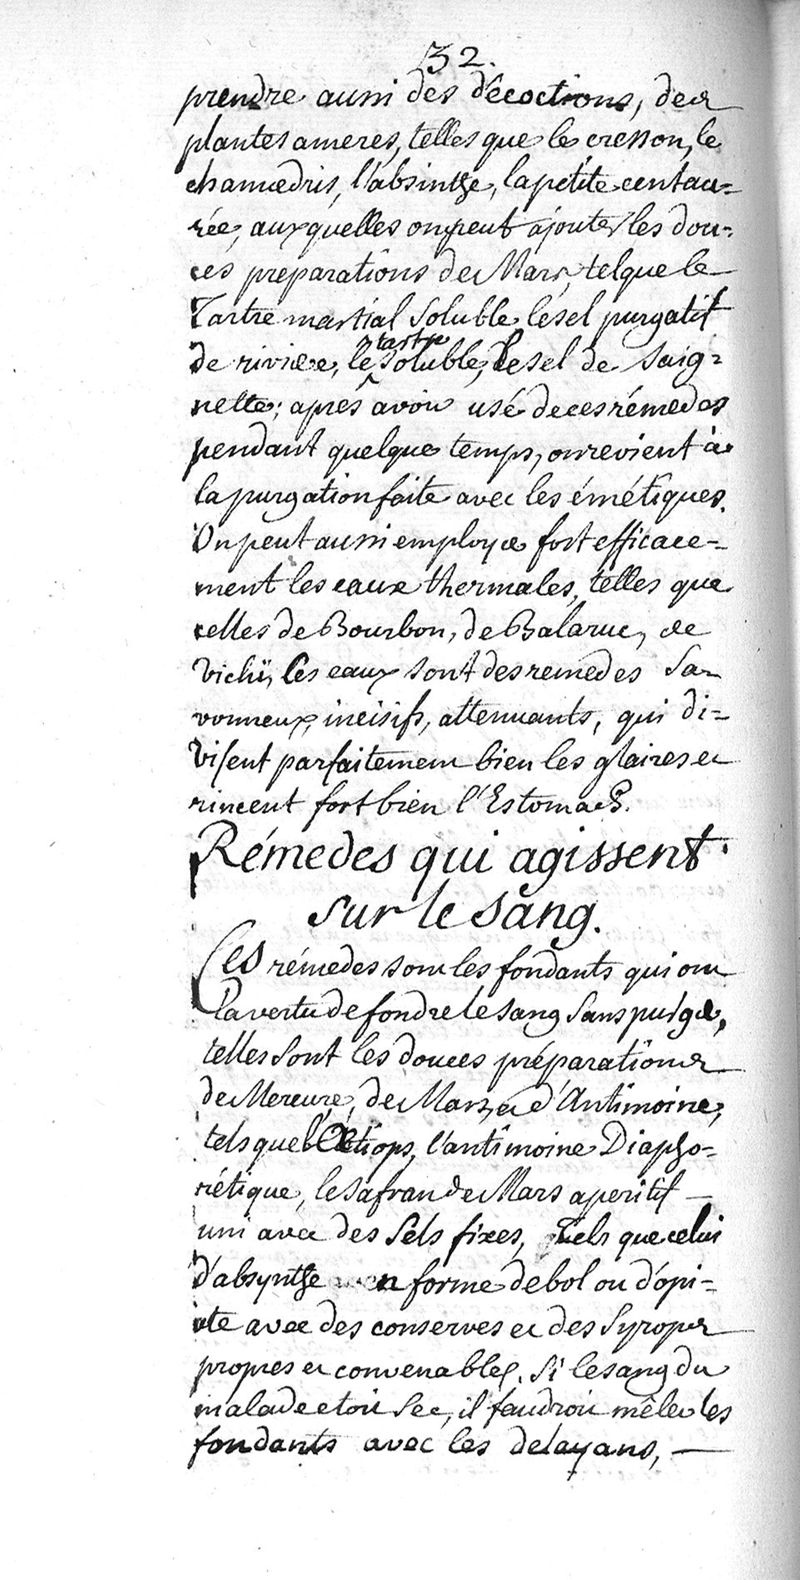 32.
prendre aussi des décoctions, des
plantes ameres, telles que le cresson, le
chamœdris, l'absinthe, la petite centau=
rée, auxquelles on peut ajouter les dou=
ces preparations de Mars, tel que le
Tartre martial soluble, le sel purgatif
de riviere, le tartre soluble, le sel de saig=
nette; après avoir usé de ces rémedes
pendant quelque temps, on revient à
la purgation faite avec les émétiques.
On peut aussi employer fort efficace=
ment les eaux thermales, telles que
celles de Bourbon, de Balaruc, de
Vichÿ, Ces eaux sont des remedes sa=
vonneux, incisifs, attenuants, qui di=
visent parfaitement bien les glaires et
rincent fort bien l'Estomach.
Rémedes qui agissent
sur le sang.
Ces rémedes sont les fondants qui ont
la vertu de fondre le sang sans purger,
telles sont les douces préparations
de Mercure, de Mars, et d'Antimoine,
tels que l'Œtiops, l'antimoine Diapho=
rétique, le safran de Mars aperitif
uni avec des sels fixes, tels que celui
d'absynthe en forme de bol ou d'opi=
ate avec des conserves et des syrops
propres et convenables. Si le sang du
malade etoit sec, il faudroit mêler les
fondants avec les delayans,